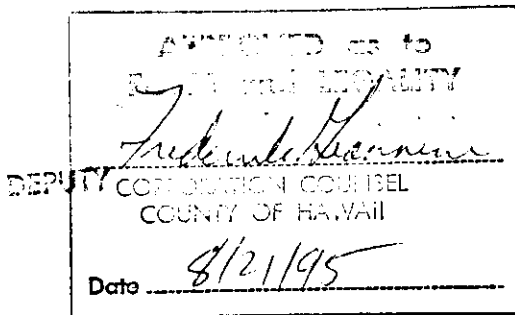 APPROVED as to
FORM and LEGALITY
Frederick Giannini
DEPUTY CORPORATION COUNSEL
COUNTY OF HAWAII
Date 8/21/95